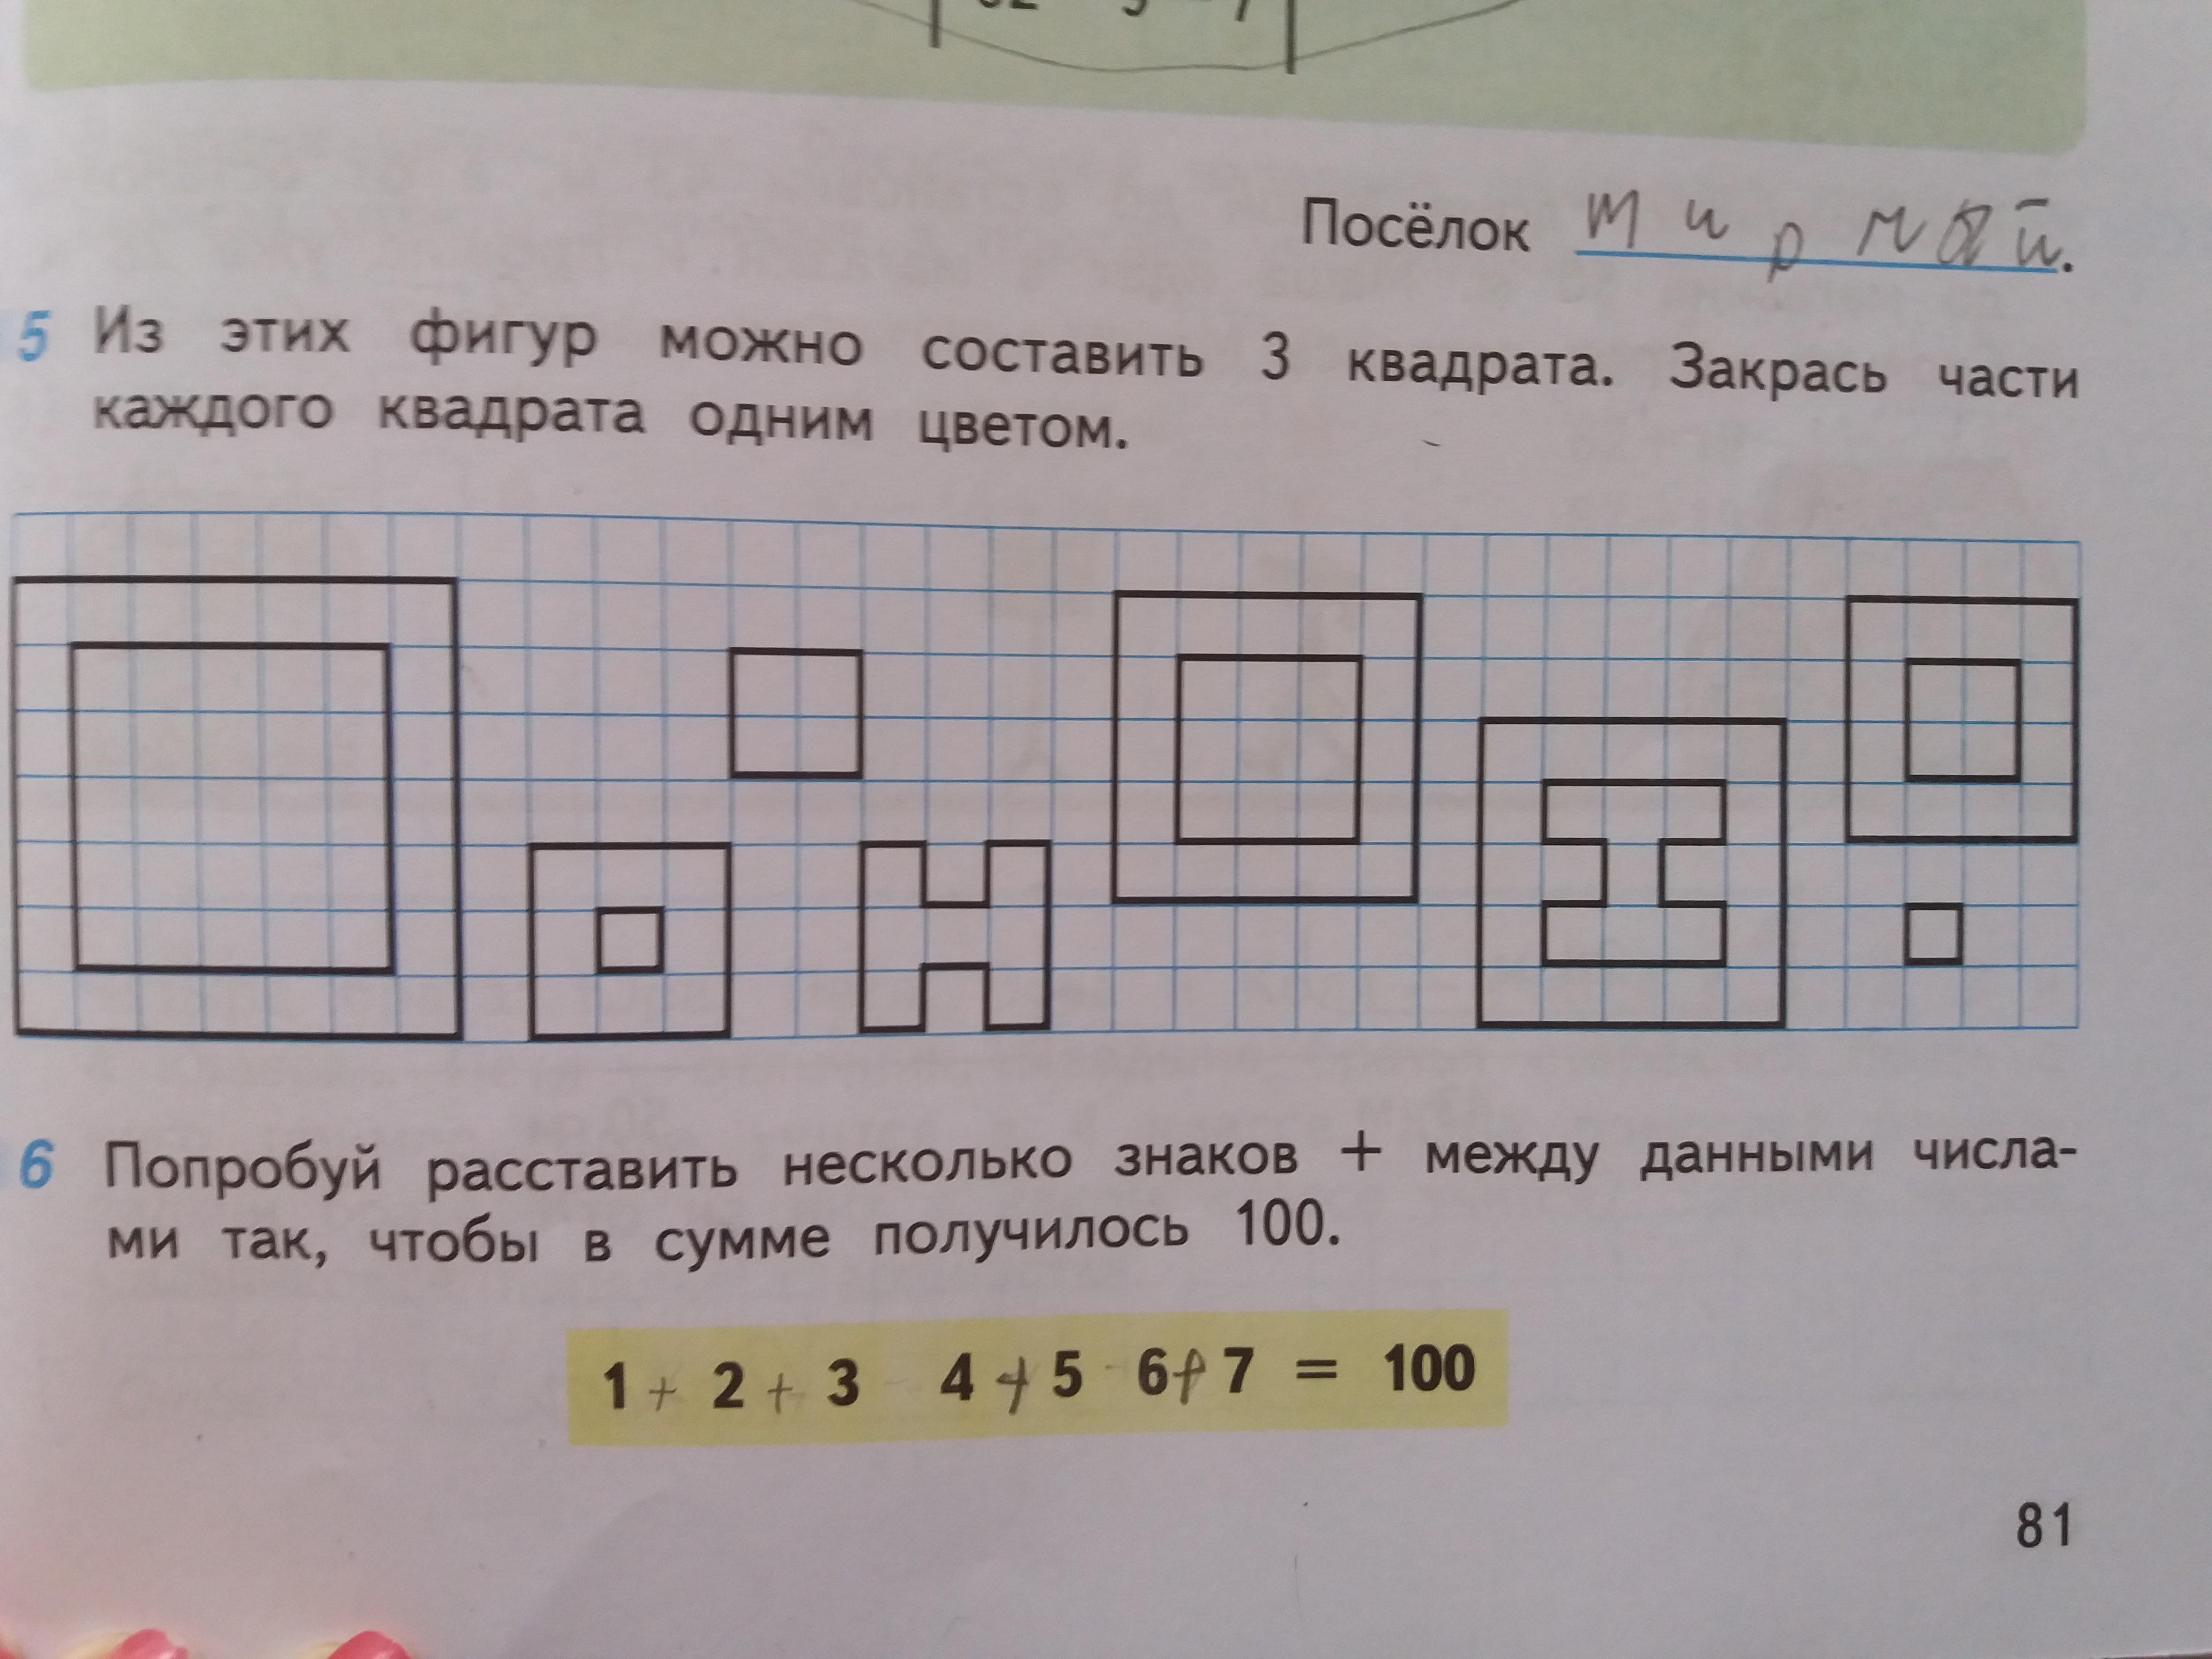 Посёлок мирный.
5 Из этих фигур можно составить 3 квадрата. Закрась части
каждого квадрата одним цветом.
6 Попробуй расставить несколько знаков + между данными числа-
ми так, чтобы в сумме получилось 100.
1 + 2 + 3 4 + 5 6 + 7 = 100
81